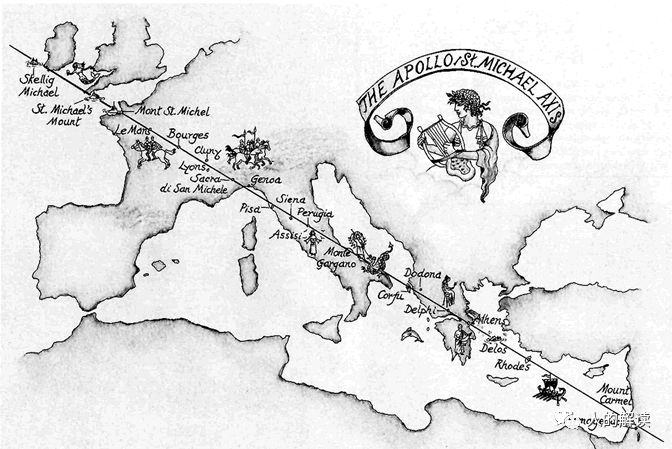 THE APOLLO/St. MICHAEL AXIS
Skellig
Michael
St. Michael's
Mount
Mont St. Michel
Le Mans
Bourges
Cluny
Lyons
Sacra
di San Michele
Genoa
Pisa
Siena
Perugia
Assisi
Monte
Gargano
Dodona
Corfu
Delphi
Athens
Delos
Rhodes
Mount
Carmel
人的解读